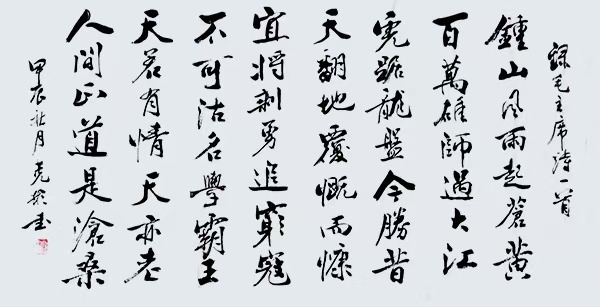 錄毛主席詩一首
鍾山风雨起蒼黃
百萬雄師過大江
虎踞龍盤今勝昔
天翻地覆慨而慷
宜將剩勇追窮寇
不可沽名學霸王
天若有情天亦老
人間正道是滄桑
甲辰秋月克书